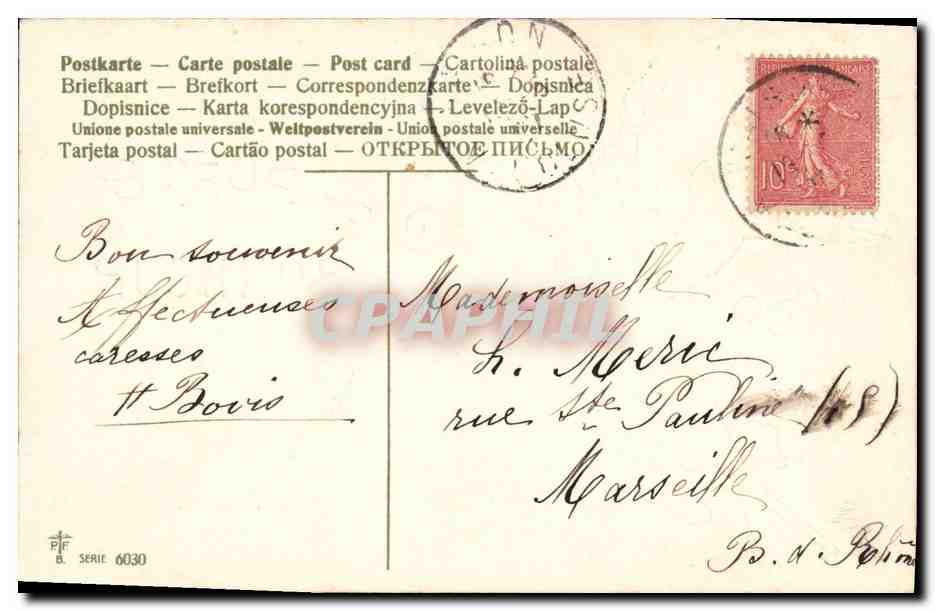 Postkarte — Carte postale — Post card — Cartolina postale
Briefkaart — Brefkort — Correspondenzkarte — Dopisnica
Dopisnice — Karta korespondencyjna — Levelező-Lap
Unione postale universale - Weltpostverein - Union postale universelle
Tarjeta postal — Cartão postal — ОТКРЫТОЕ ПИСЬМО
10
Bon souvenir
Affectueuses
caresses
H Bovis
Mademoiselle
h. Meric
rue Ste Pauline
Marseille
B. d. Rhône
CPAPHIL
P. F.
B. SERIE 6030